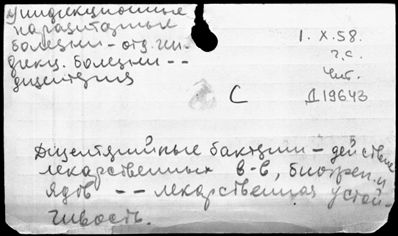 инфекционные
паразитарные
болезни - отд. ин-
фекц. болезни --
дизентерия
1. X. 58.
Чит.
Д19643
С
Дизентерийные бактерии - действие
лекарственных в-в, биопреп. и
ядов -- лекарственная устой-
чивость.